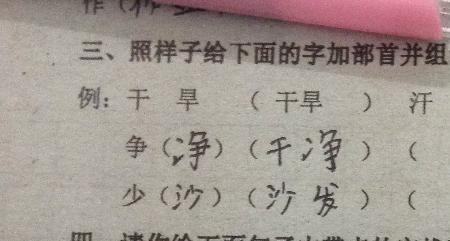 作（
三、照样子给下面的字加部首并组
例：干 旱 （ 干旱 ） 汗
争（净）（干净）（
少（沙）（沙发）（